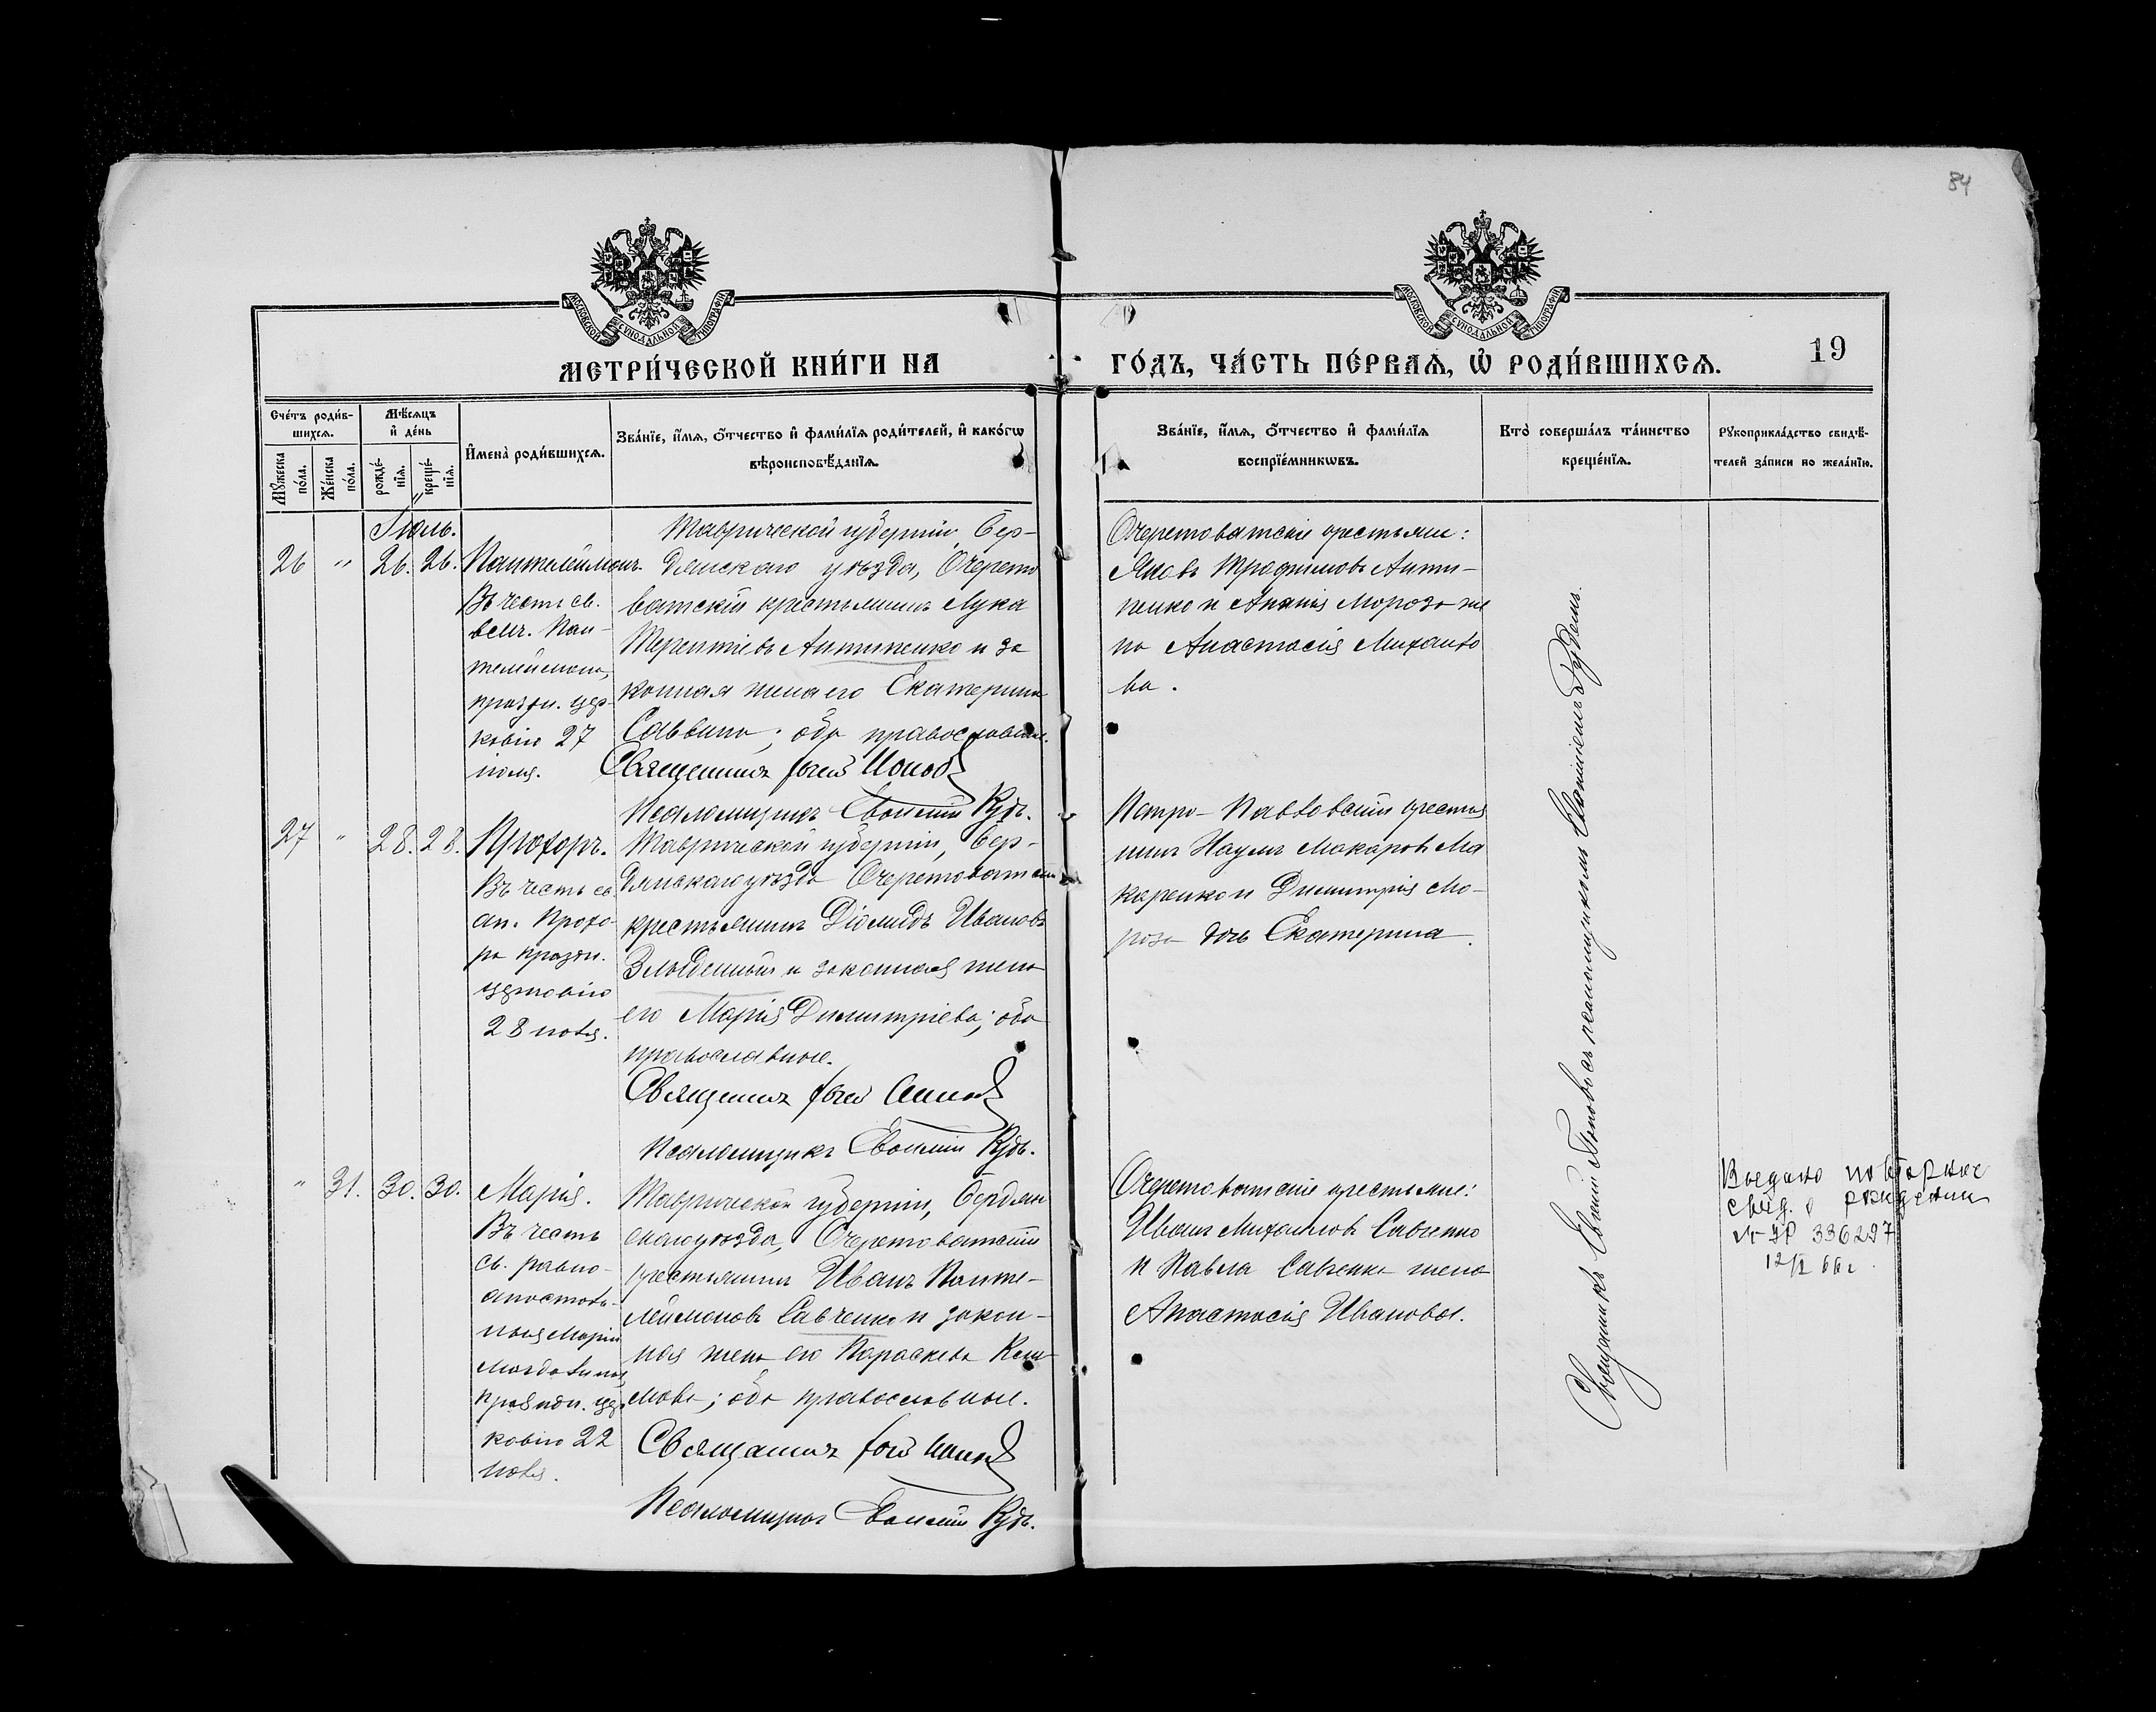 84
МОСКОВСКОЙ СѴНОДАЛЬНОЙ ТИПОГРАФІИ
МОСКОВСКОЙ СѴНОДАЛЬНОЙ ТИПОГРАФІИ
МЕТРИ́ЧЕСКОЙ КНИ́ГИ НА
ГО́ДЪ, ЧА́СТЬ ПЕ́РВАѦ, Ѡ҆ РОДИ́ВШИХСѦ.
19
Сче́тъ роди́в-
шихсѧ.
Мꙋ́жеска
по́ла.
Же́нска
по́ла.
Мѣ́сѧцъ
и҆ де́нь
рожде́-
нїѧ.
креще́-
нїѧ.
И҆мена̀ роди́вшихсѧ.
Зва́нїе, и҆́мѧ, ѻ҆́тчество и҆ фами́лїѧ роди́телей, и҆ како́гѡ
вѣроисповѣ́данїѧ.
Зва́нїе, и҆́мѧ, ѻ҆́тчество и҆ фами́лїѧ
воспрїе́мникѡвъ.
Кто̀ соверша́лъ та́инство
креще́нїѧ.
Рꙋкоприкла́дство свидѣ́-
телей за́писи по жела́нїю.
Іюль.
26 " 26. 26.
Пантелеймонъ.
Въ честь св.
велч. Пан-
телеймона,
праздн. цер-
ковію 27
іюля.
Таврической губерніи, Бер-
дянскаго уѣзда, Очерето
ватскій крестьянинъ Лука
Терентіевъ Антипенко и за
конная жена его Екатерина
Саввина; оба православные.
Священникъ Попов
Псаломщикъ
Очеретоватскіе крестьяне:
Яковъ Трофимовъ Анти-
пенко и Ананія Мороза же
на Анастасія Михаило
ва.
27 " 28. 28.
Прохоръ.
Въ честь св.
ап. Прохо-
ра праздн.
церковію
28 іюля.
Таврической губерніи, Бер-
дянскаго уѣзда Очеретоватскій
крестьянинъ Діомидъ Ивановъ
и законная жена
его Марія Димитріева; оба
православные.
Священникъ
Псаломщикъ
Петро-Павловскій крестья
нинъ Наумъ Макаровъ Ма
каренко и Димитрія Мо-
роза дочь Екатерина.
" 31. 30. 30.
Марія.
Въ честь
св. равно-
апостоль-
ныя Маріи
Магдалины,
праздн. цер
ковію 22
іюля.
Таврической губерніи, Бердян
скаго уѣзда, Очеретоватскій
крестьянинъ Иванъ Панте-
леймоновъ Савченко и закон-
ная жена его Параскева Кли
мова; оба православные.
Священникъ
Псаломщикъ
Очеретоватскіе крестьяне:
Иванъ Михаиловъ Савченко
и Павла Савченко жена
Анастасія Иванова.
Священникъ Попов съ псаломщикомъ
Выдано повторное
свид. о рождении
336297
12/I 66 г.